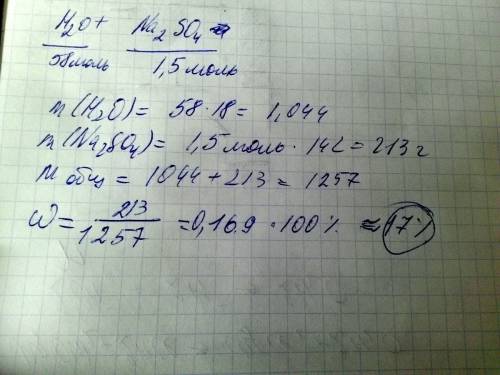 H₂O + Na₂SO₄
58 моль 1,5 моль
m(H₂O) = 58 · 18 = 1,044
m(Na₂SO₄) = 1,5 моль · 142 = 213 г
M общ = 1044 + 213 = 1257
W = 213/1257 = 0,169 · 100% ≈ 17%